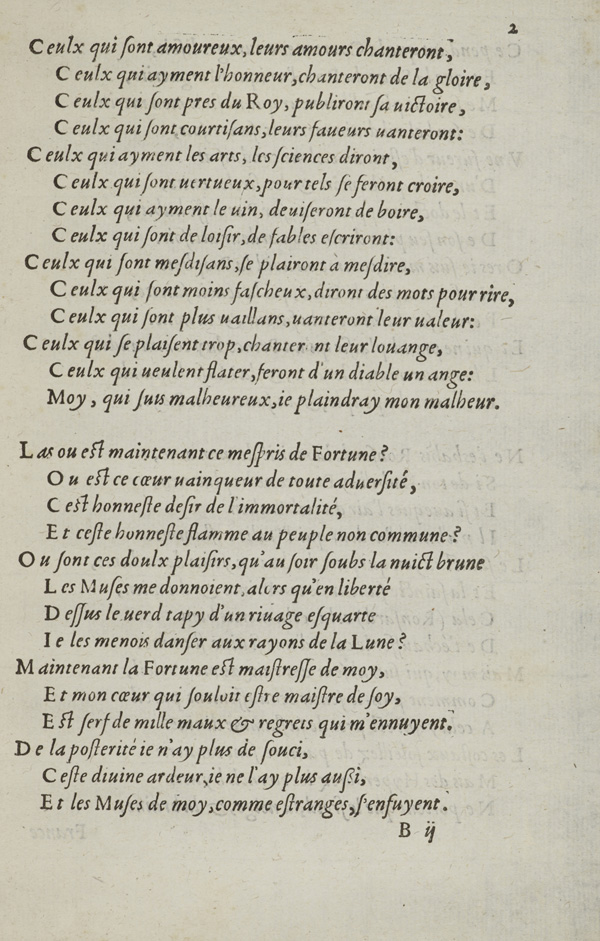 2
Ceulx qui ſont amoureux, leurs amours chanteront,
Ceulx qui ayment l'honneur, chanteront de la gloire,
Ceulx qui ſont pres du Roy, publiront ſa uictoire,
Ceulx qui ſont courtiſans, leurs faueurs uanteront:
Ceulx qui ayment les arts, les ſciences diront,
Ceulx qui ſont uertueux, pour tels ſe feront croire,
Ceulx qui ayment le uin, deuiſeront de boire,
Ceulx qui ſont de loiſir, de fables eſcriront:
Ceulx qui ſont meſdiſans, ſe plairont a meſdire,
Ceulx qui ſont moins faſcheux, diront des mots pour rire,
Ceulx qui ſont plus uaillans, uanteront leur ualeur:
Ceulx qui ſe plaiſent trop, chanteront leur louange,
Ceulx qui ueulent flater, feront d'un diable un ange:
Moy, qui ſuis malheureux, ie plaindray mon malheur.
Las ou eſt maintenant ce meſpris de Fortune?
Ou eſt ce cœur uainqueur de toute aduerſité,
Ceſt honneſte deſir de l'immortalité,
Et ceſte honneſte flamme au peuple non commune?
Ou ſont ces doulx plaiſirs, qu'au ſoir ſoubs la nuict brune
Les Muſes me donnoient, alors qu'en liberté
Deſſus le uerd tapy d'un riuage eſquarte
Ie les menois danſer aux rayons de la Lune?
Maintenant la Fortune eſt maiſtreſſe de moy,
Et mon cœur qui ſouloit eſtre maiſtre de ſoy,
Eſt ſerf de mille maux & regrets qui m'ennuyent.
De la poſterité ie n'ay plus de ſouci,
Ceſte diuine ardeur, ie ne l'ay plus auſſi,
Et les Muſes de moy, comme eſtranges, ſ'enfuyent.
B ij